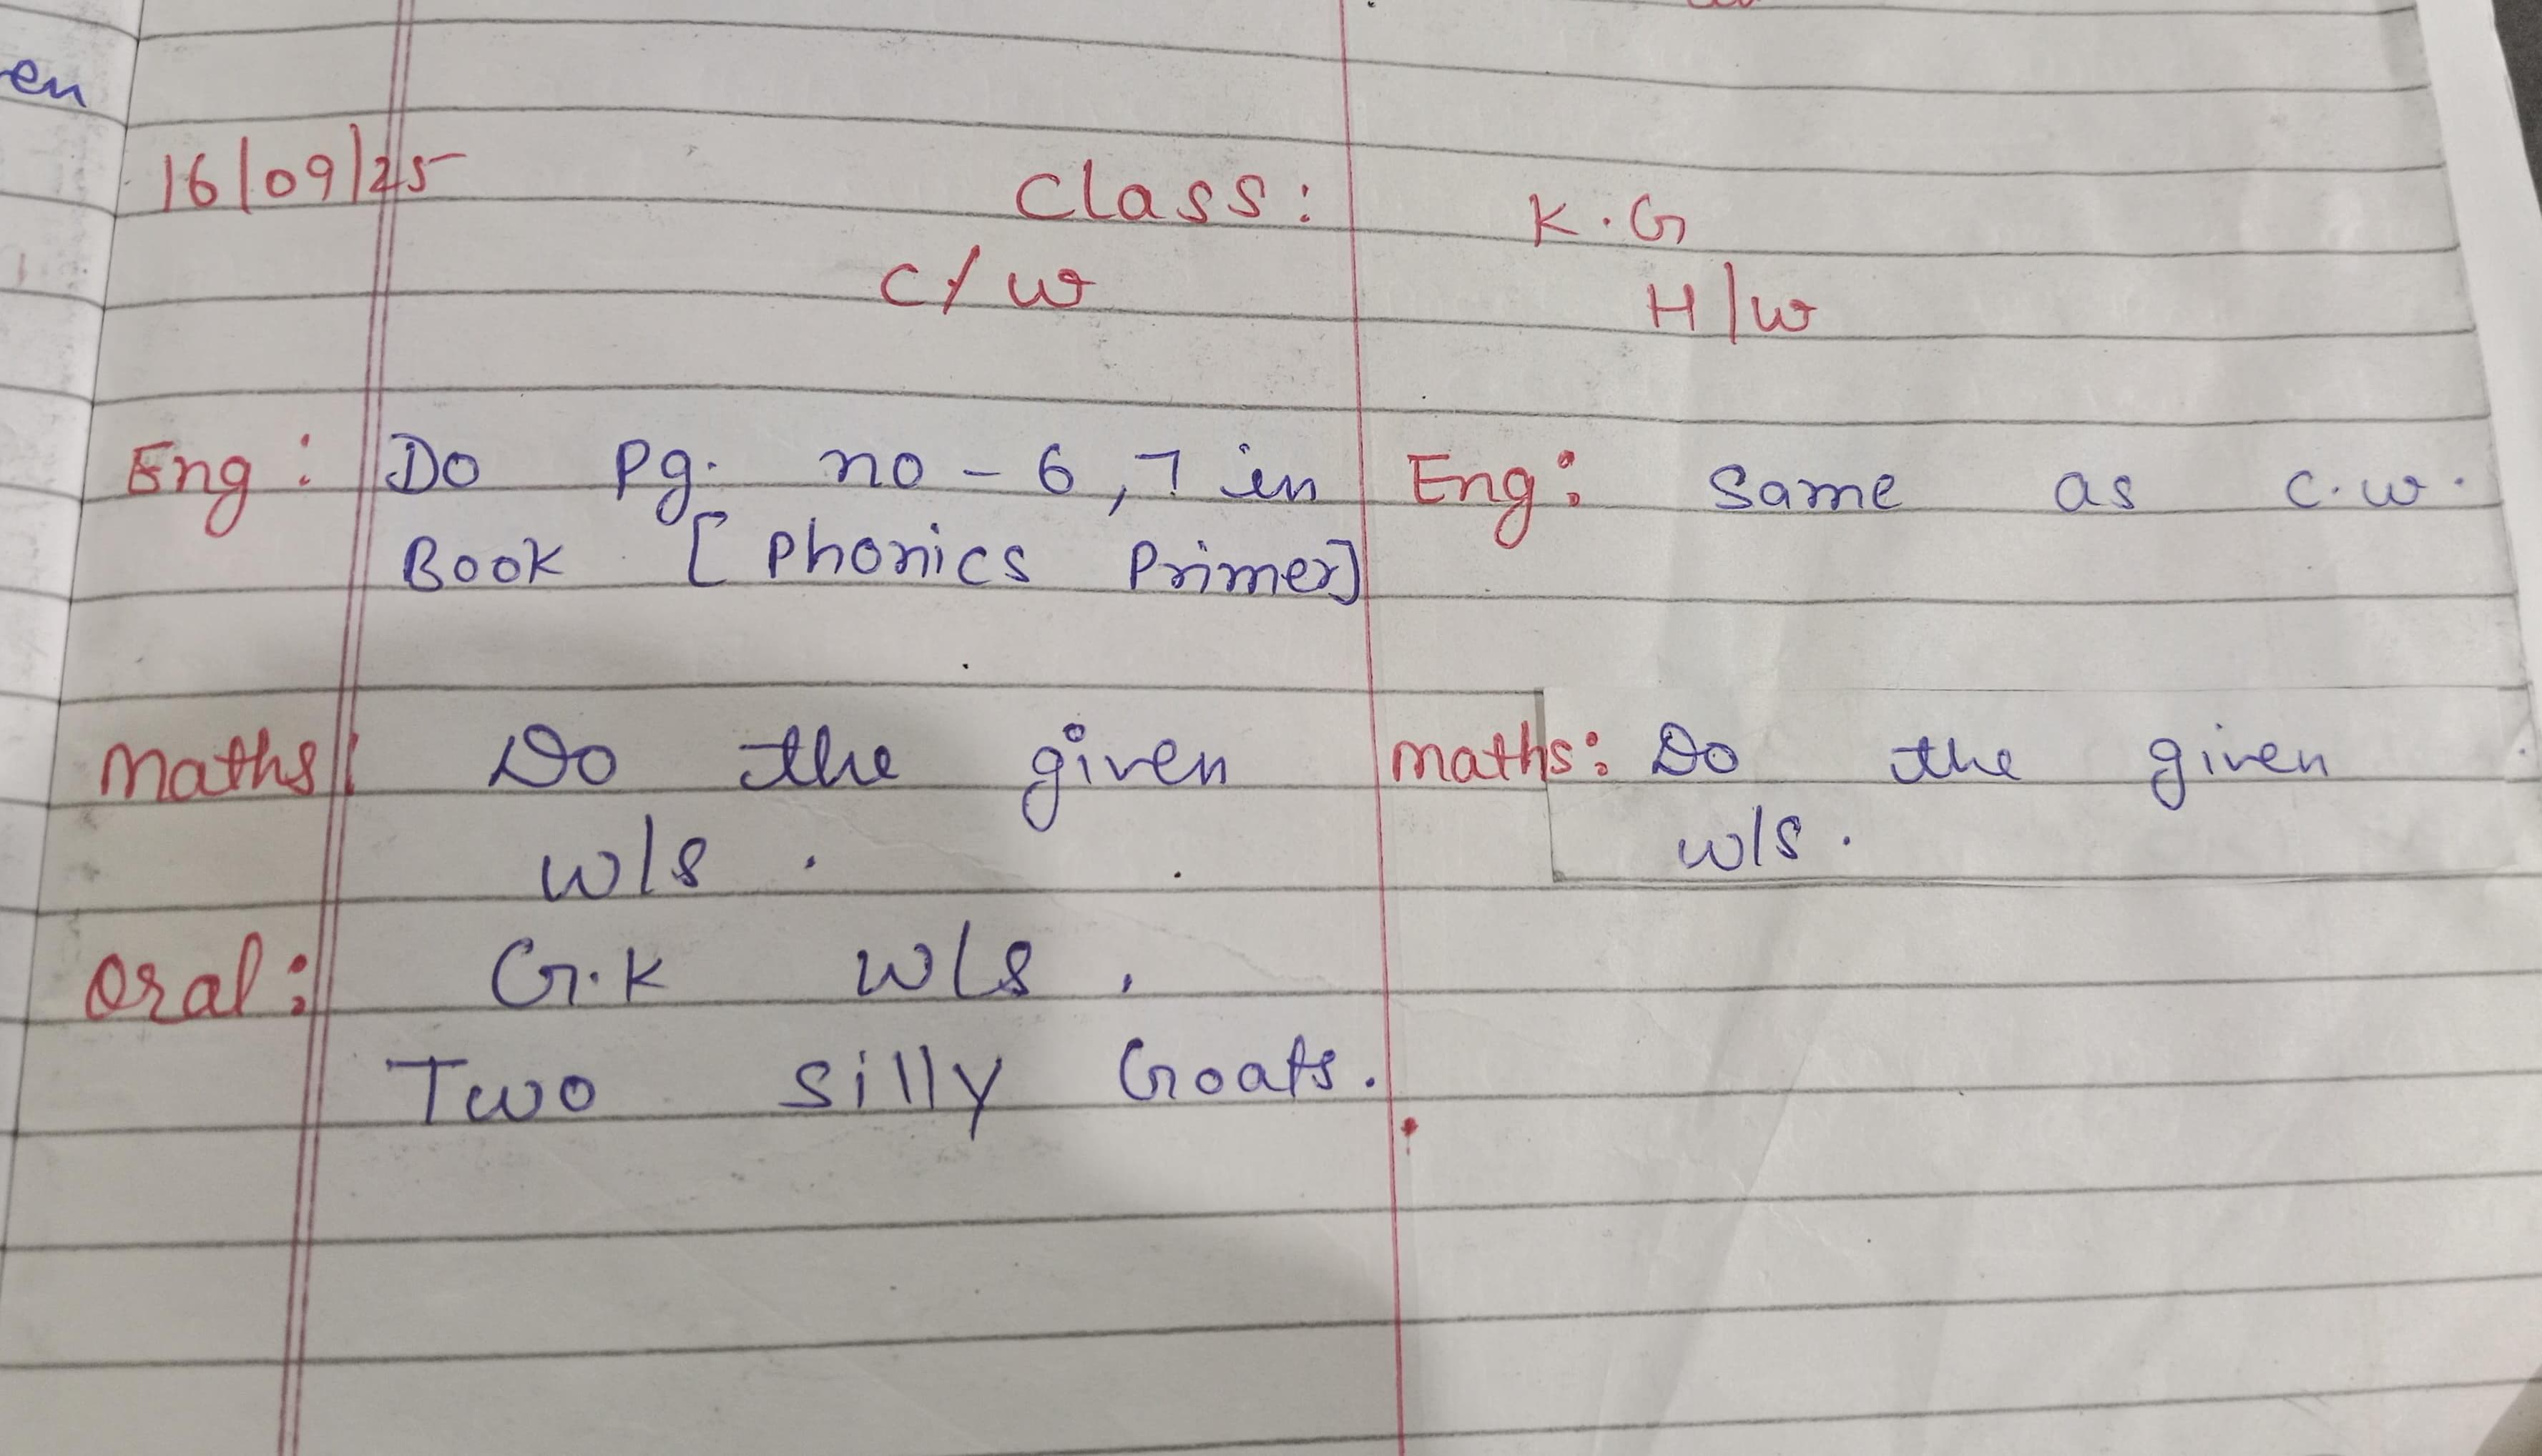 en
16/09/25 Class: K.G
C/w H/w
Eng: Do Pg. no - 6, 7 in Eng: Same as c.w.
Book [Phonics Primer]
Maths: Do the given maths: Do the given
w/s. w/s.
Oral: G.K w/s.
Two silly Goats.